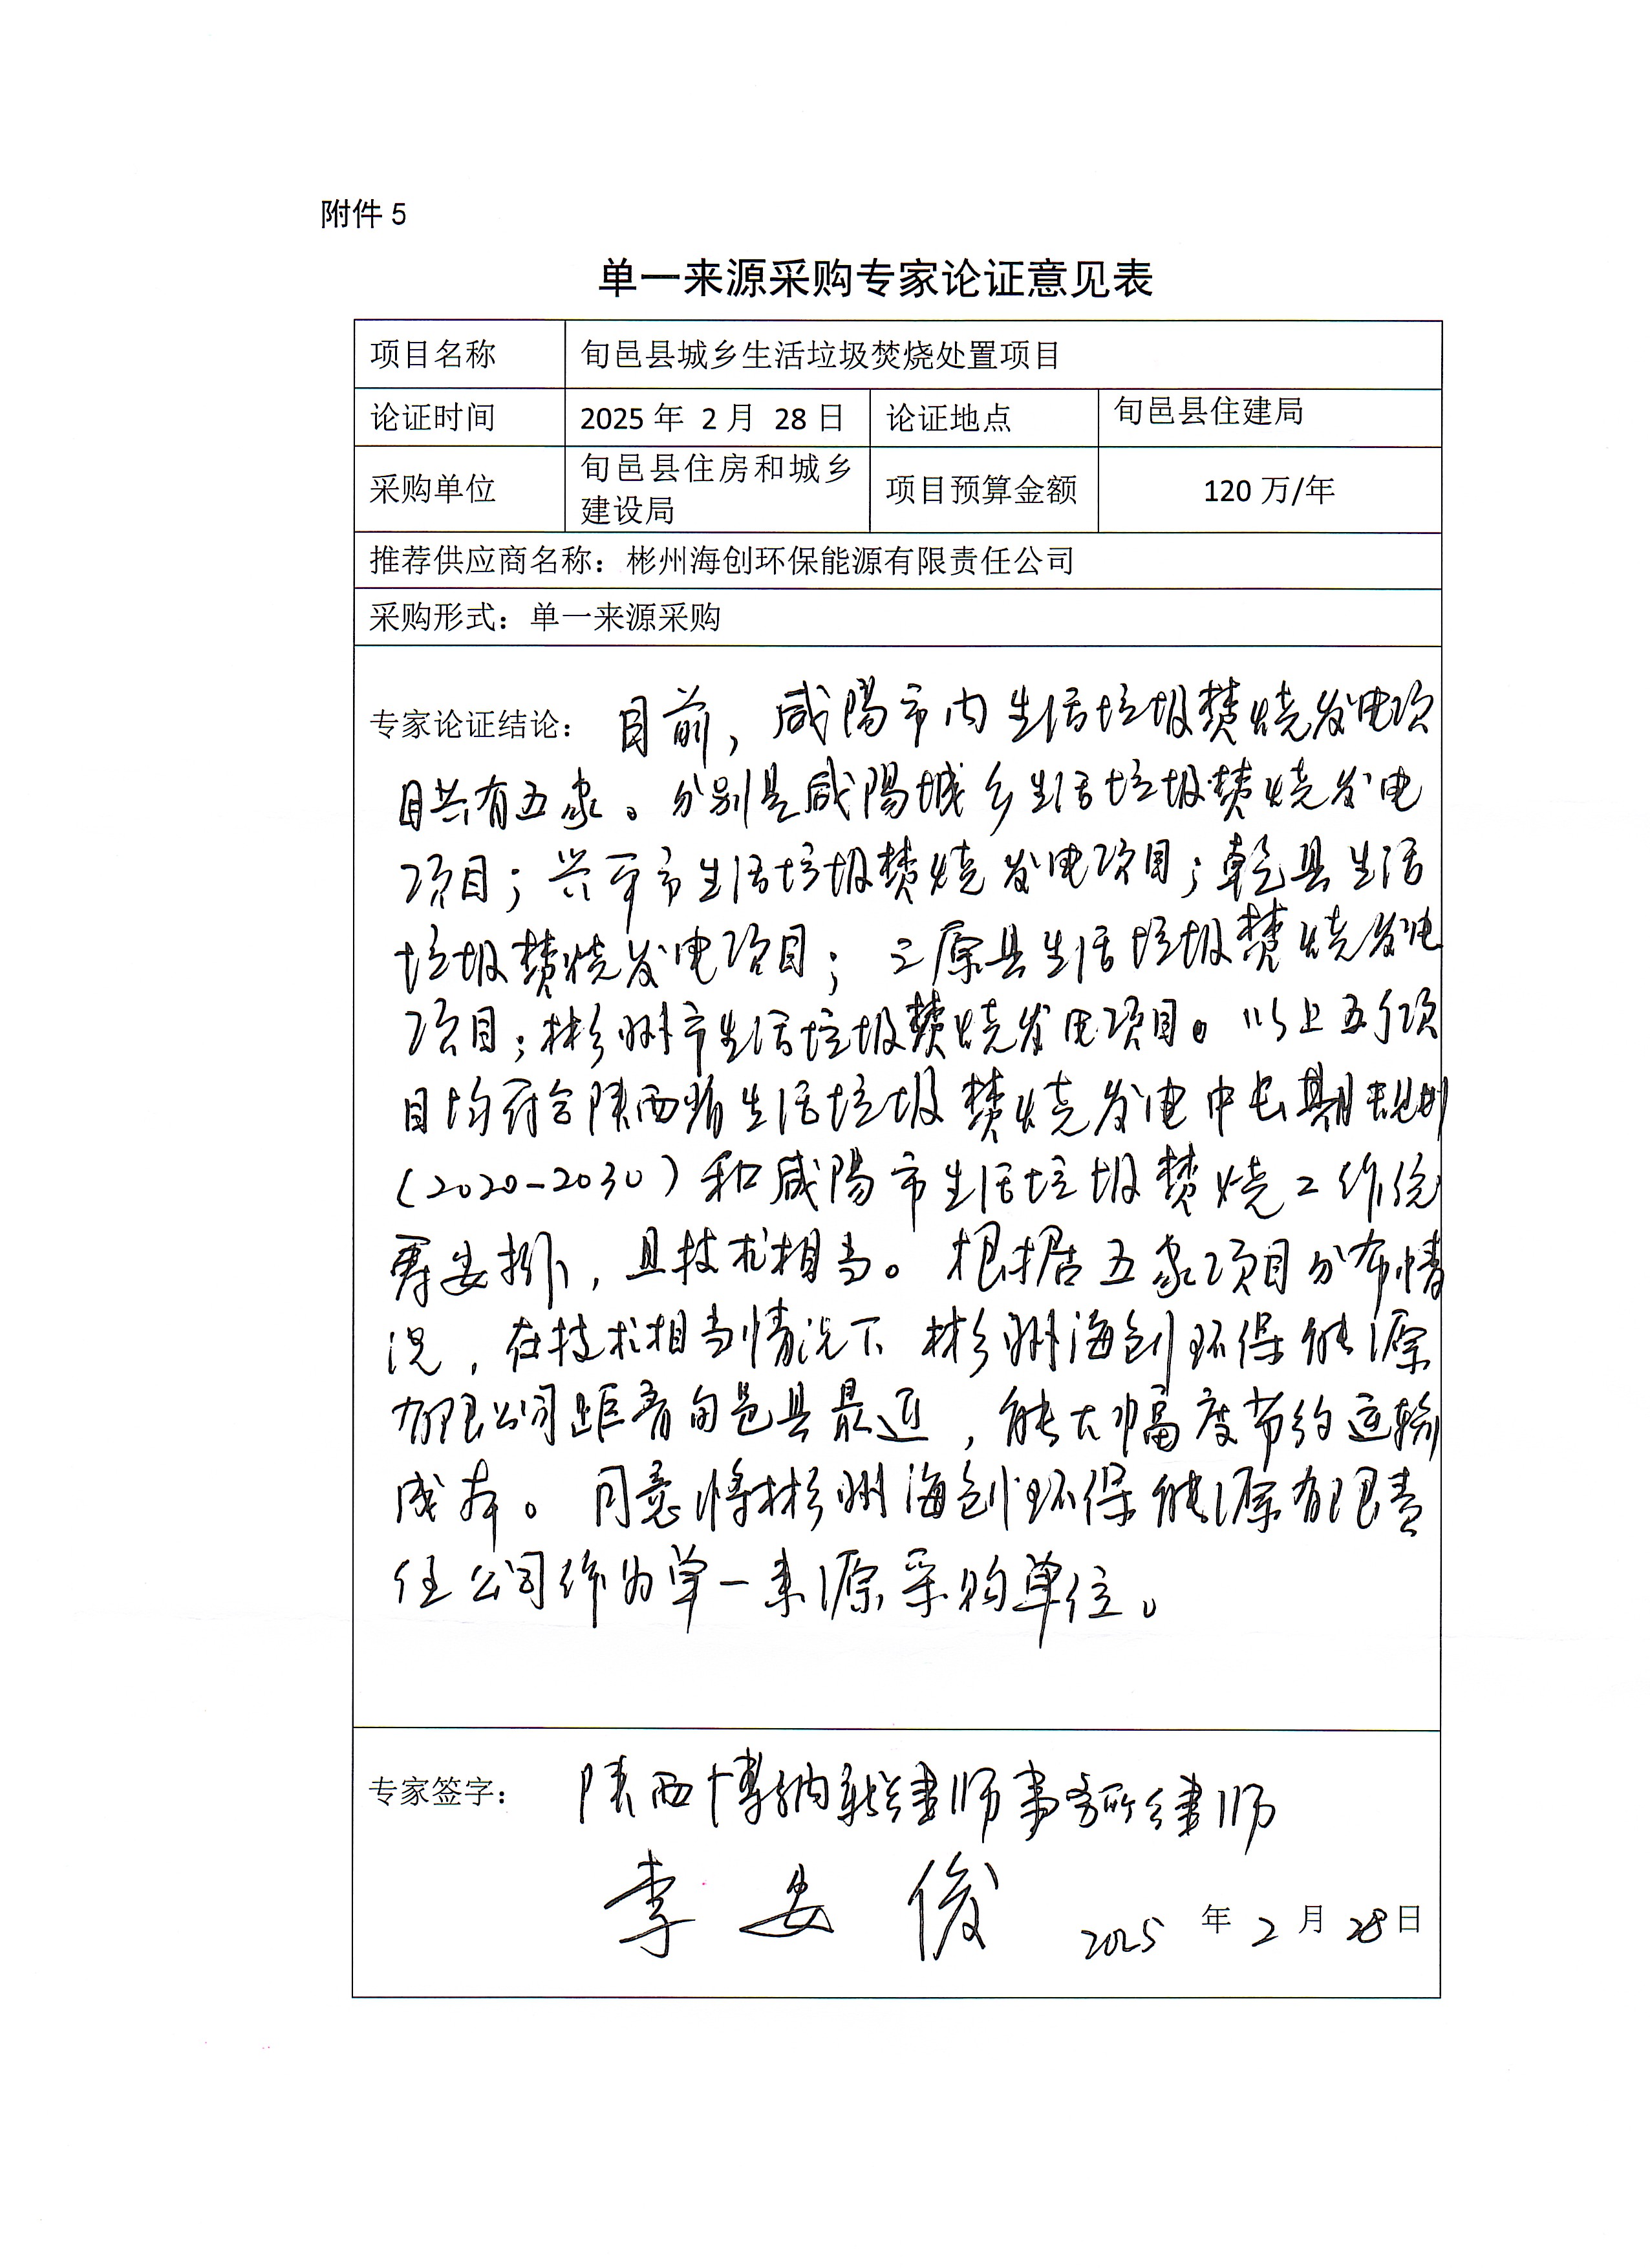 附件 5
单一来源采购专家论证意见表
项目名称 旬邑县城乡生活垃圾焚烧处置项目
论证时间 2025 年 2 月 28 日 论证地点 旬邑县住建局
采购单位 旬邑县住房和城乡建设局 项目预算金额 120 万/年
推荐供应商名称：彬州海创环保能源有限责任公司
采购形式：单一来源采购
专家论证结论：目前，咸阳市内生活垃圾焚烧发电项
目共有五家。分别是咸阳城乡生活垃圾焚烧发电
项目；兴平市生活垃圾焚烧发电项目；乾县生活
垃圾焚烧发电项目；三原县生活垃圾焚烧发电
项目；彬州市生活垃圾焚烧发电项目。以上五个项
目均符合陕西省生活垃圾焚烧发电中长期规划
（2020-2030）和咸阳市生活垃圾焚烧工作统
筹安排，且技术相当。根据五家项目分布情
况，在技术相当情况下彬州海创环保能源
有限公司距离旬邑县最近，能大幅度节约运输
成本。同意将彬州海创环保能源有限责
任公司作为单一来源采购单位。
专家签字：陕西博纳律师事务所律师
李安俊 2025 年 2 月 28 日